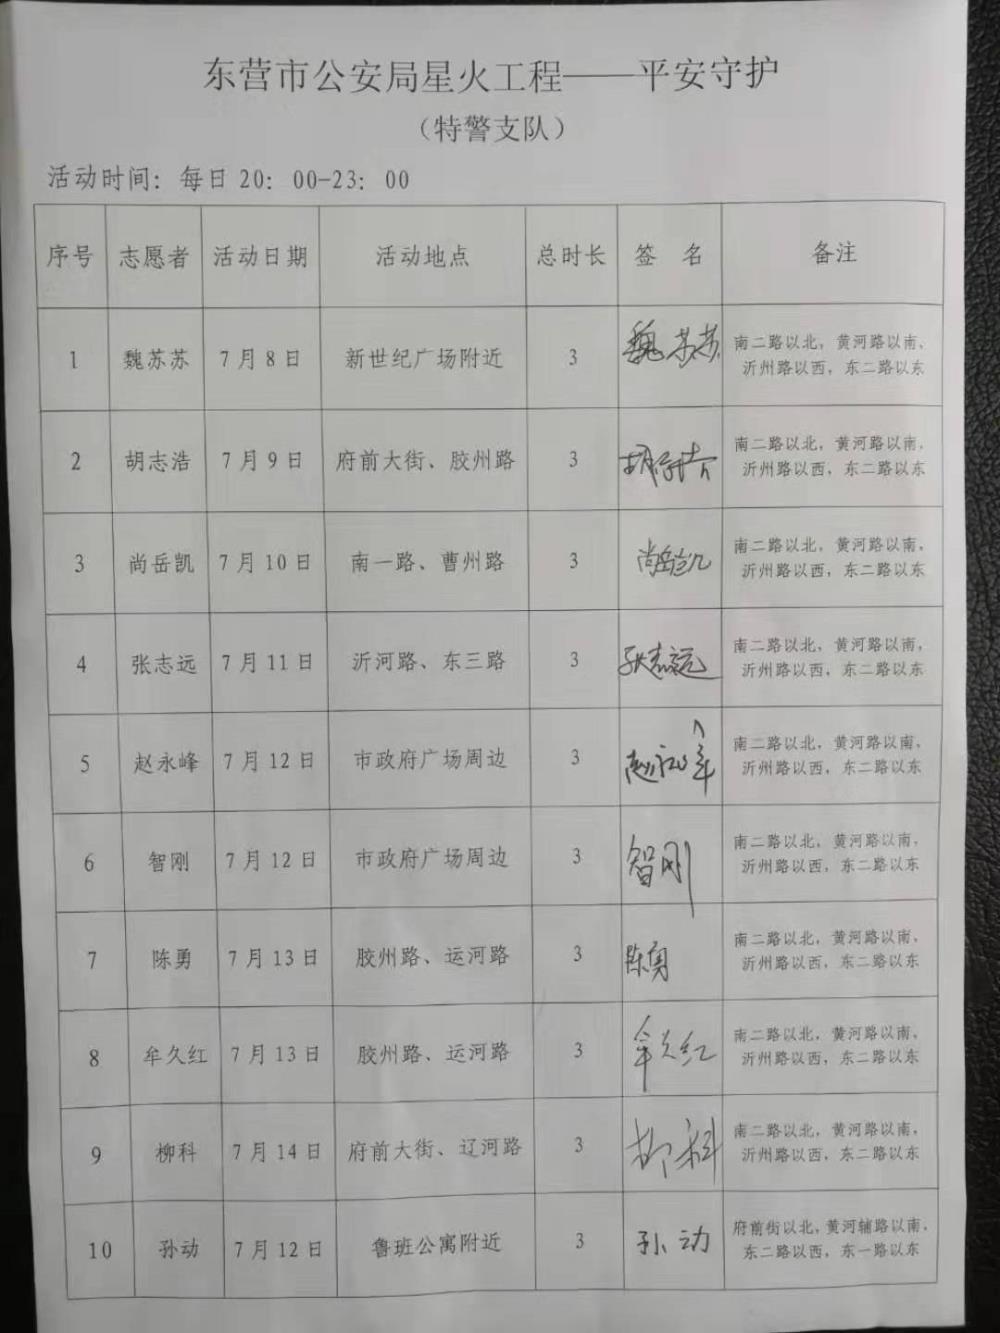 东营市公安局星火工程——平安守护
（特警支队）
活动时间：每日 20：00-23：00
序号 志愿者 活动日期 活动地点 总时长 签 名 备注
1 魏苏苏 7月8日 新世纪广场附近 3 魏苏苏 南二路以北，黄河路以南、
沂州路以西，东二路以东
2 胡志浩 7月9日 府前大街、胶州路 3 胡志浩 南二路以北，黄河路以南、
沂州路以西，东二路以东
3 尚岳凯 7月10日 南一路、曹州路 3 尚岳凯 南二路以北，黄河路以南、
沂州路以西，东二路以东
4 张志远 7月11日 沂河路、东三路 3 张志远 南二路以北，黄河路以南、
沂州路以西，东二路以东
5 赵永峰 7月12日 市政府广场周边 3 赵永峰 南二路以北，黄河路以南、
沂州路以西，东二路以东
6 智刚 7月12日 市政府广场周边 3 智刚 南二路以北，黄河路以南、
沂州路以西，东二路以东
7 陈勇 7月13日 胶州路、运河路 3 陈勇 南二路以北，黄河路以南、
沂州路以西，东二路以东
8 牟久红 7月13日 胶州路、运河路 3 牟久红 南二路以北，黄河路以南、
沂州路以西，东二路以东
9 柳科 7月14日 府前大街、辽河路 3 柳科 南二路以北，黄河路以南、
沂州路以西，东二路以东
10 孙动 7月12日 鲁班公寓附近 3 孙动 府前街以北，黄河辅路以南、
东二路以西，东一路以东